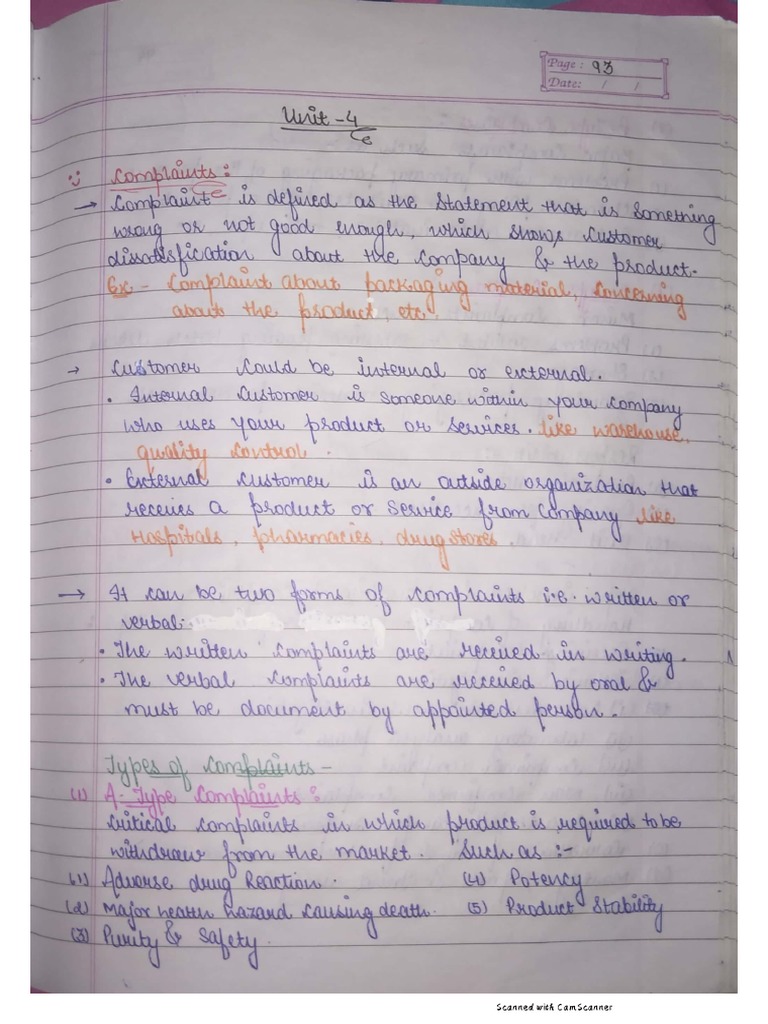 Page: 93
Date: / /
Unit-4
Complaints:
→ Complaint is defined as the statement that is something
wrong or not good enough, which shows customer
dissatisfication about the company & the product.
Ex:- Complaint about packaging material, concerning
about the product, etc.
→ Customer could be internal or external.
• Internal customer is someone within your company
who uses your product or services. like warehouse,
quality control.
• External customer is an outside organization that
receives a product or service from company like
Hospitals, pharmacies, drug stores.
→ It can be two forms of complaints i.e. written or
verbal.
• The written complaints are received in writing.
• The verbal complaints are received by oral &
must be document by appointed person.
Types of complaints -
(1) A-Type Complaints:
Critical complaints in which product is required to be
withdraw from the market. Such as :-
(1) Adverse drug Reaction. (4) Potency
(2) Major health hazard causing death. (5) Product Stability
(3) Purity & Safety.
Scanned with CamScanner